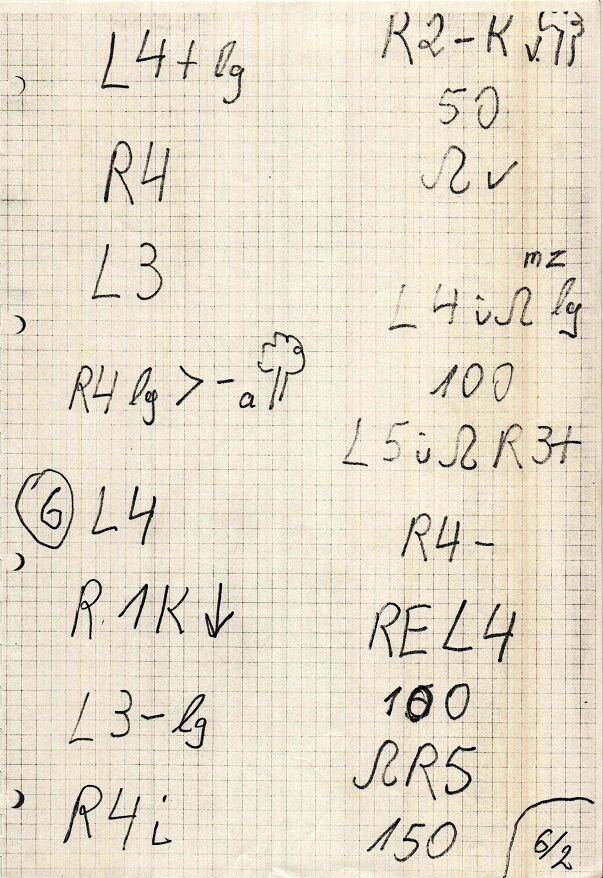 L4+lg
R4
L3
R4 lg > - a
6 L4
R. 1K ↓
L3-lg
R4i
R2-K v.
50
Ω v
mz
L4 i Ω lg
100
L5 i Ω R3+
R4-
REL4
100
ΩR5
150
6/2